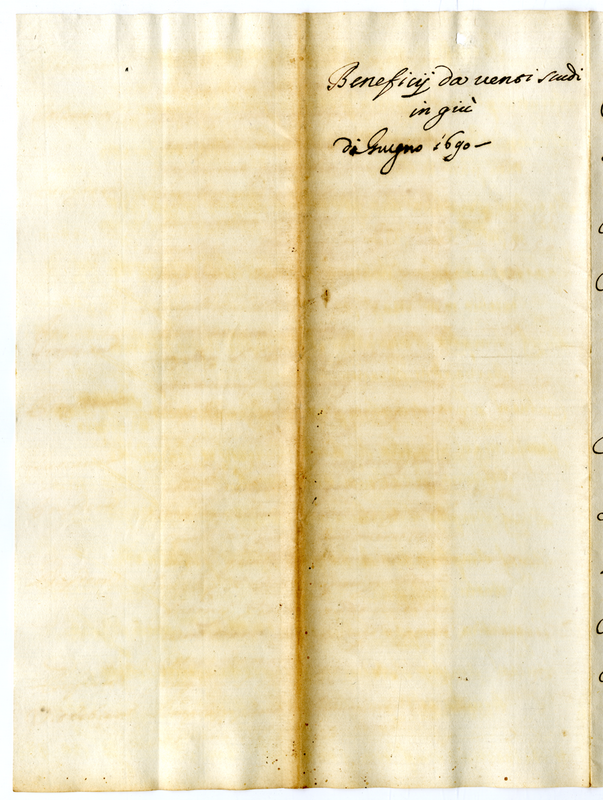 Beneficij da venti scudi
in giù
di Giugno 1690